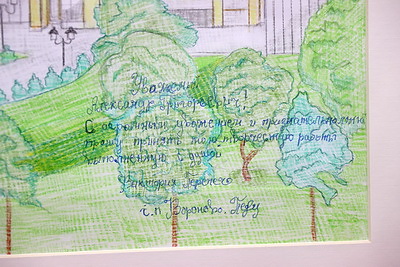 Уважаемый
Александр Григорьевич!
С огромным уважением и признательностью
прошу принять мою творческую работу
выполненную с душой
Виктория
г.п Вороново.